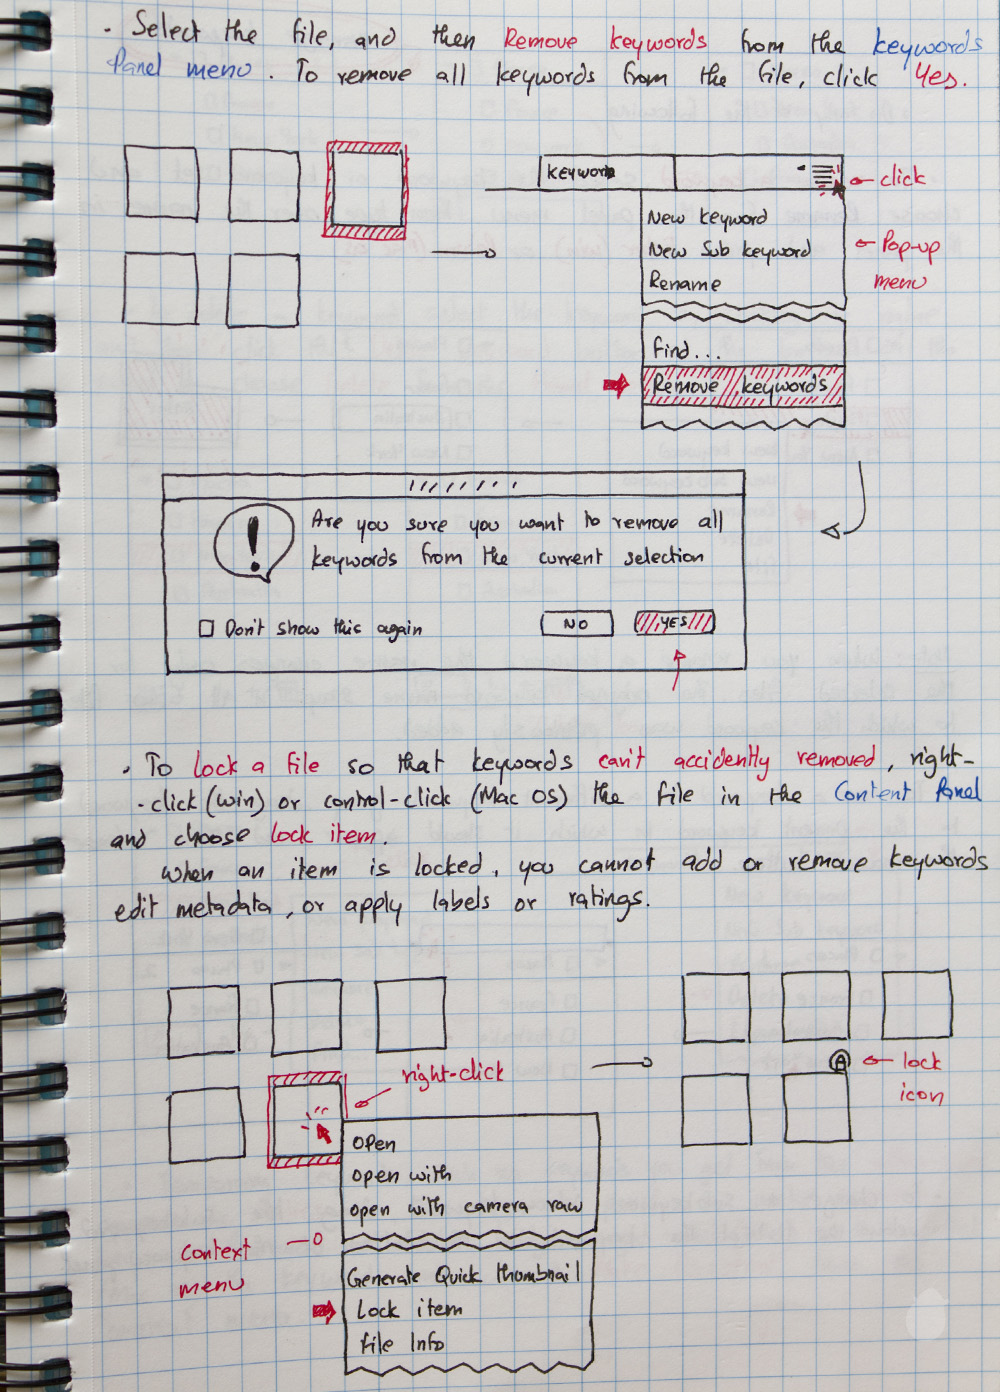 . Select the file, and then Remove keywords from the keywords
Panel menu. To remove all keywords from the file, click Yes.
keyword
click
New keyword
New Sub keyword
Rename
Pop-up
menu
find...
Remove keywords
Are you sure you want to remove all
keywords from the current selection
Don't show this again
NO
YES
. To lock a file so that keywords can't accidently removed, right-
-click (win) or control-click (Mac OS) the file in the Content Panel
and choose lock item.
when an item is locked, you cannot add or remove keywords
edit metadata, or apply labels or ratings.
right-click
lock
icon
open
open with
open with camera raw
context
menu
Generate Quick thumbnail
Lock item
file Info